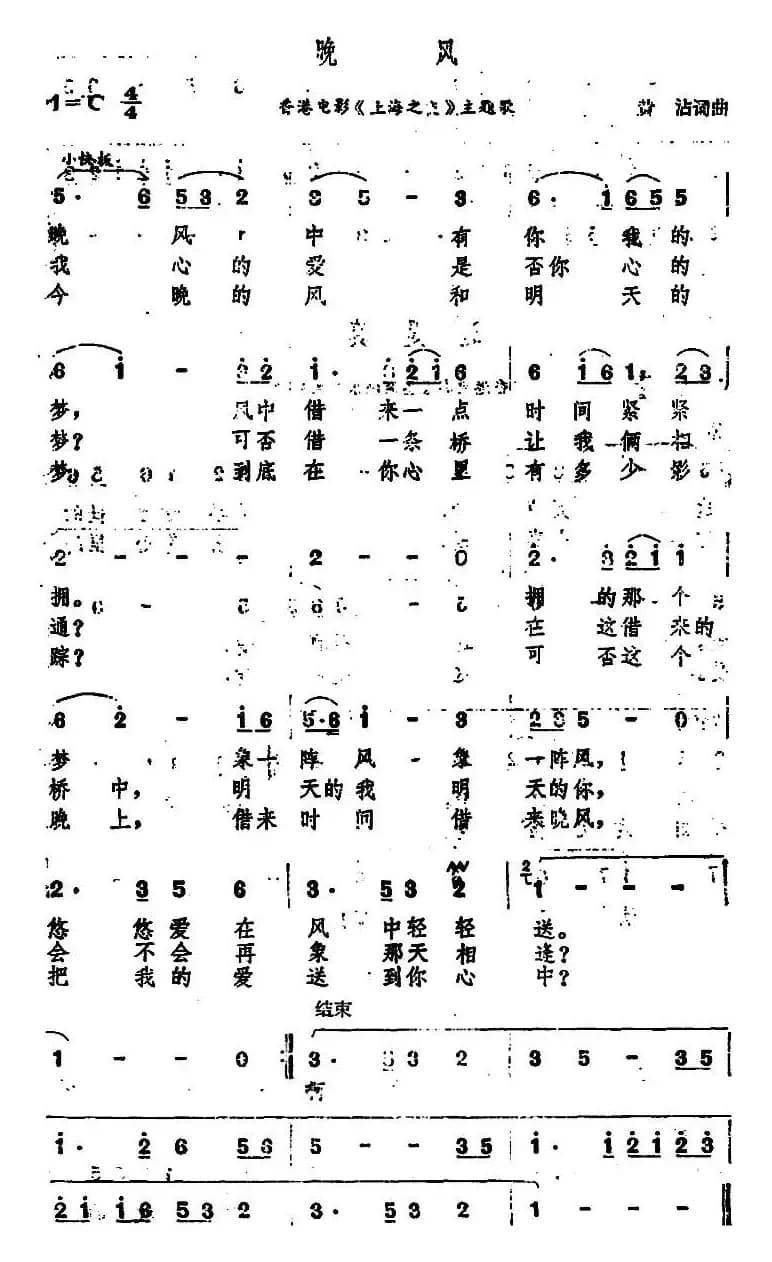 晚 风
1=C 4/4 香港电影《上海之夜》主题歌 沾词曲
小快板
5· 6 5 3 2 3 5 - 3 6· 1 6 5 5
晚 风 中 有 你 我 的
我 心 的 爱 是 否 你 心 的
今 晚 的 风 和 明 天 的
6 1 - 2 2 1· 2 1 6 6 1 6 1 2 3
梦, 风中 借 来 一 点 时 间 紧 紧
梦? 可否 借 一 条 桥 让 我 俩 相
梦 到底 在 你 心 里 有 多 少 影
2 - - - 2 - - 0 2· 3 2 1 1
拥。 拥 的 那 个
通? 在 这 借 来 的
踪? 可 否 这 个
6 2 - 1 6 5· 6 1 - 3 2 3 5 - 0
梦 象一 阵 风 象 一阵风,
桥 中, 明 天的 我 明 天的你,
晚 上, 借来 时 间 借 来晚风,
2· 3 5 6 3· 5 3 2 1 - - -
悠 悠 爱 在 风 中 轻 轻 送。
会 不 会 再 象 那 天 相 逢?
把 我 的 爱 送 到 你 心 中?
结束
1 - - 0 3· 5 3 2 3 5 - 3 5
啊
1· 2 6 5 6 5 - - 3 5 1· 1 2 1 2 3
2 1 1 6 5 3 2 3· 5 3 2 1 - -